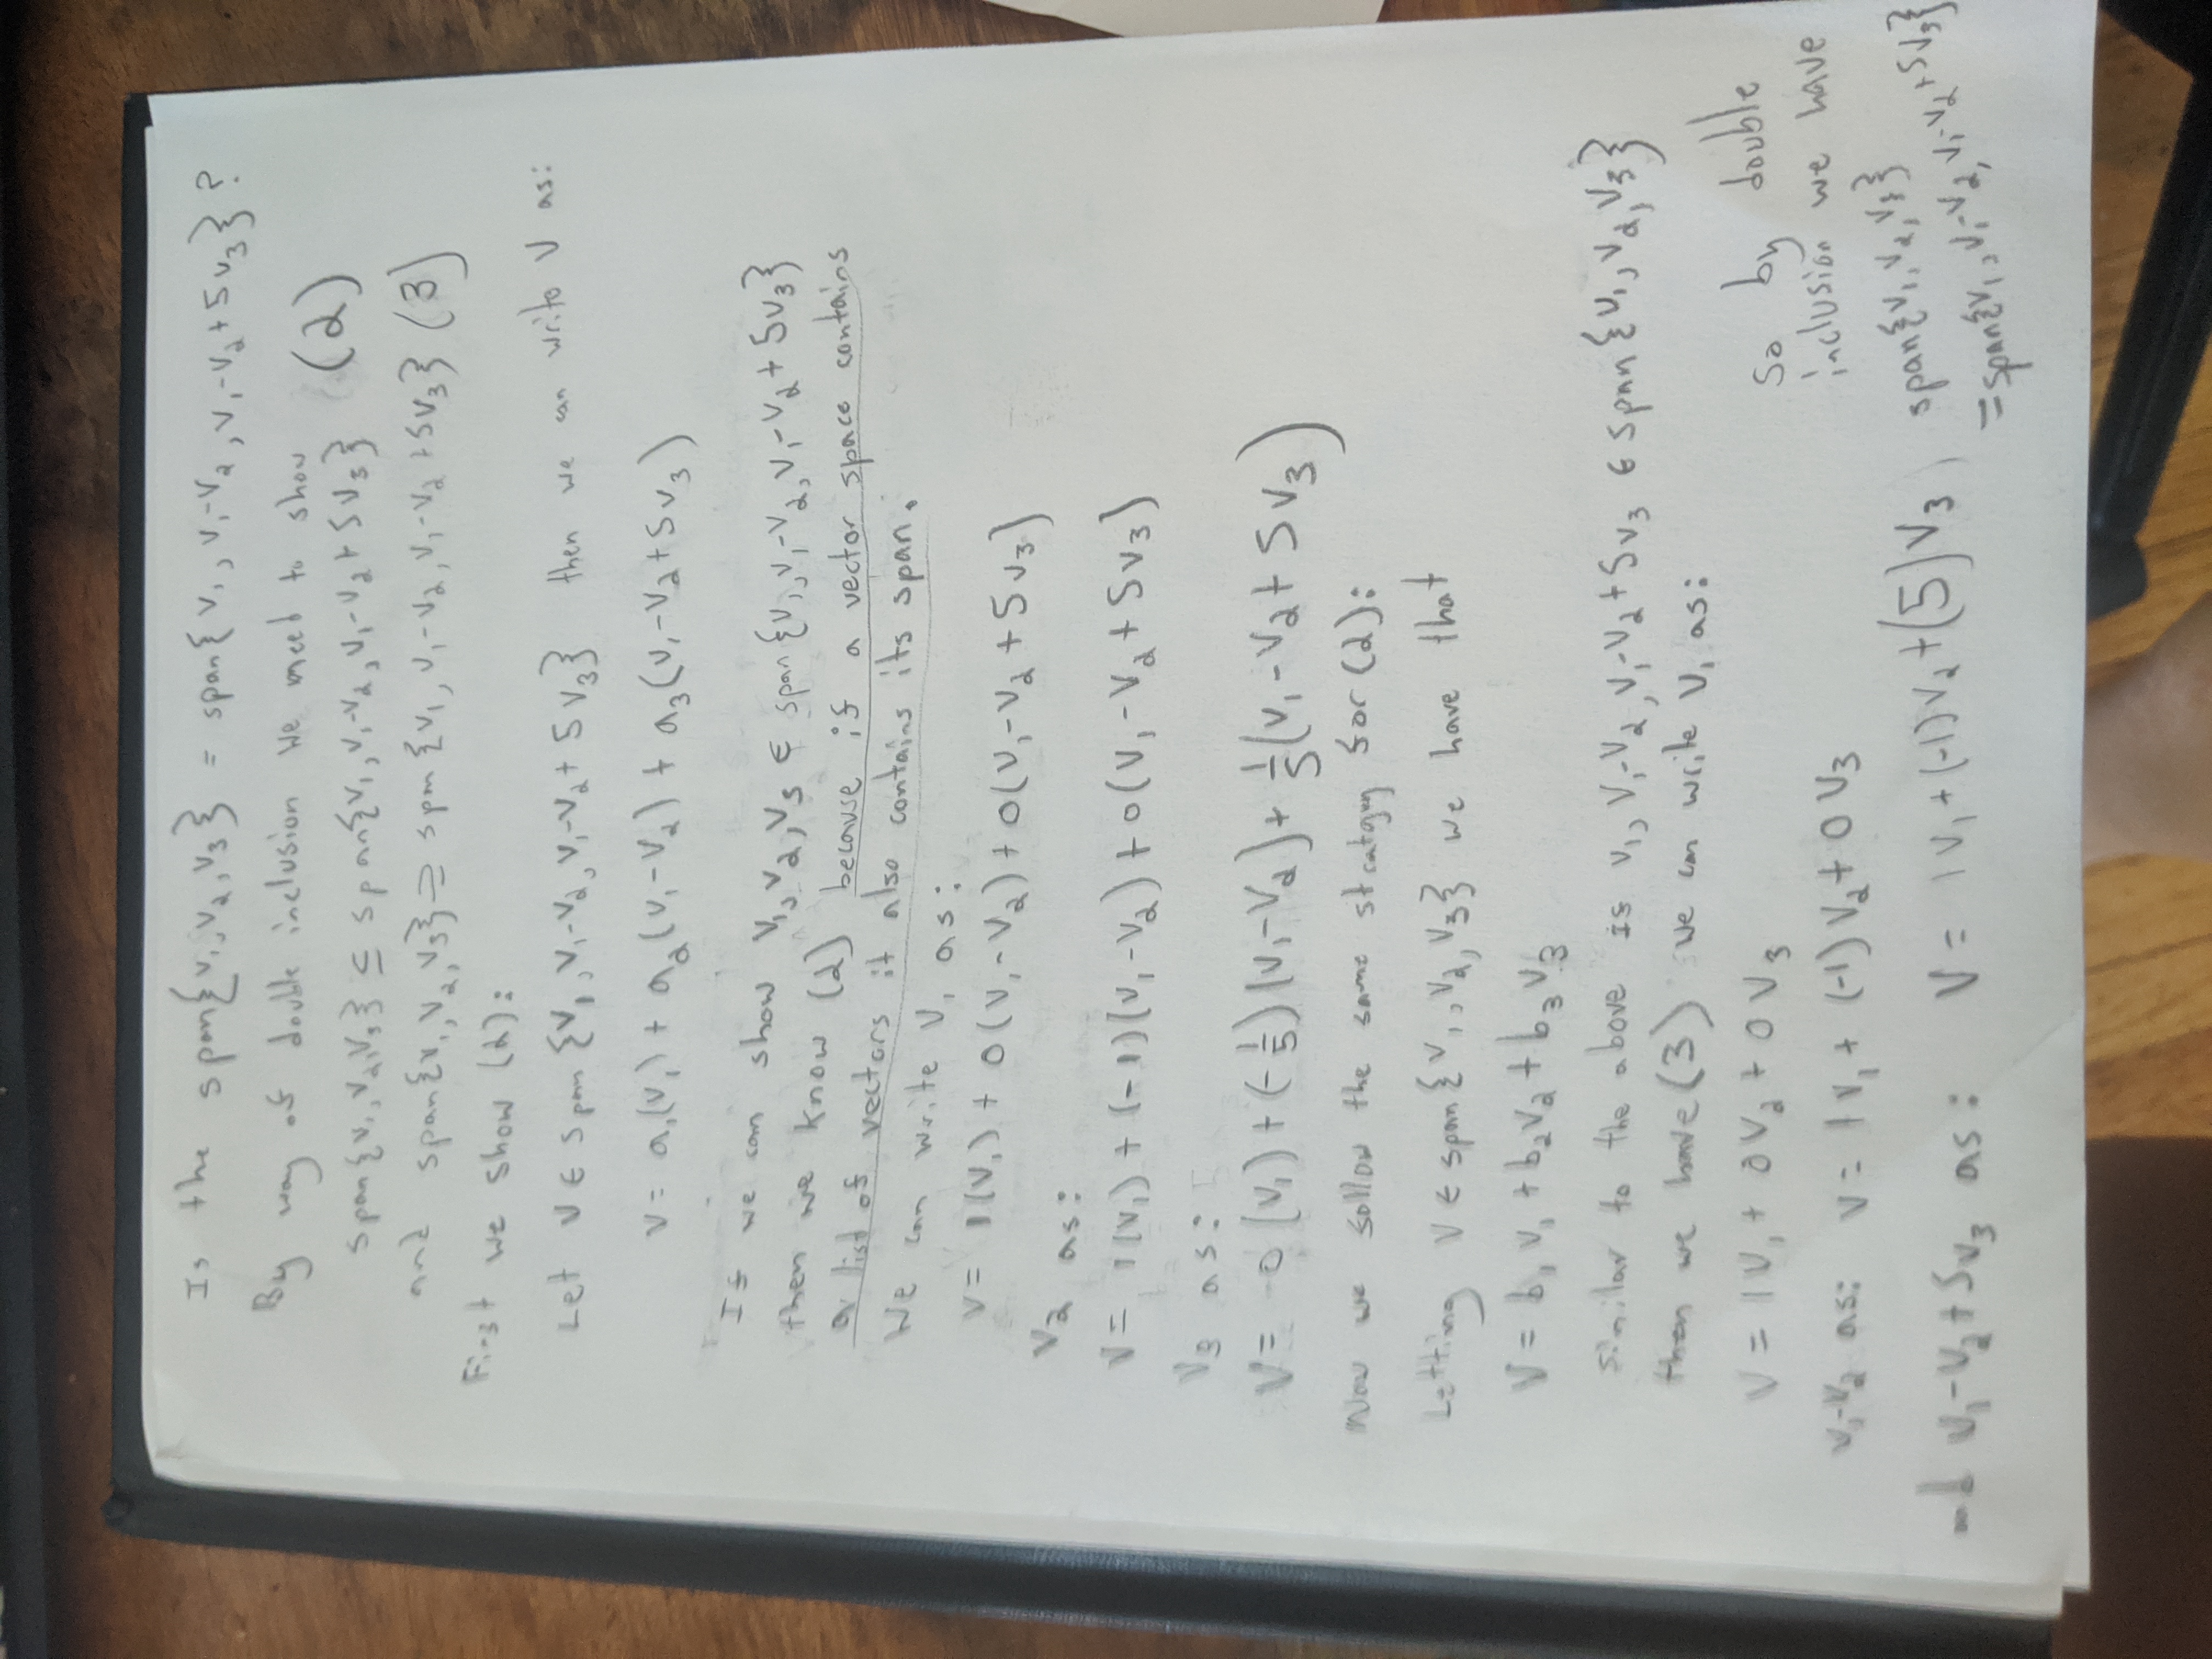 Is the span{v₁,v₂,v₃} = span{v₁, v₁-v₂, v₁-v₂+5v₃}?
By way of double inclusion we need to show
span{v₁,v₂,v₃} ⊆ span{v₁, v₁-v₂, v₁-v₂+5v₃} (2)
and span{v₁,v₂,v₃} ⊇ span{v₁, v₁-v₂, v₁-v₂+5v₃} (3)
First we show (2):
Let v ∈ span{v₁, v₁-v₂, v₁-v₂+5v₃} then we can write v as:
v = a₁(v₁) + a₂(v₁-v₂) + a₃(v₁-v₂+5v₃)
If we can show v₁,v₂,v₃ ∈ span{v₁, v₁-v₂, v₁-v₂+5v₃}
then we know (2) because if a vector space contains
a list of vectors it also contains its span.
We can write v₁ as:
v = 1(v₁) + 0(v₁-v₂) + 0(v₁-v₂+5v₃)
v₂ as:
v = 1(v₁) + (-1)(v₁-v₂) + 0(v₁-v₂+5v₃)
v₃ as:
v = 0(v₁) + (-1/5)(v₁-v₂) + 1/5(v₁-v₂+5v₃)
Now we follow the same strategy for (2):
Letting v ∈ span{v₁,v₂,v₃} we have that
v = b₁v₁ + b₂v₂ + b₃v₃
similar to the above if v₁, v₁-v₂, v₁-v₂+5v₃ ∈ span{v₁,v₂,v₃}
then we have (3) we can write v₁ as:
v = 1v₁ + 0v₂ + 0v₃
v₁-v₂ as: v = 1v₁ + (-1)v₂ + 0v₃
and v₁-v₂+5v₃ as: v = 1v₁ + (-1)v₂ + (5)v₃
so by double
inclusion we have
span{v₁,v₂,v₃}
= span{v₁, v₁-v₂, v₁-v₂+5v₃}